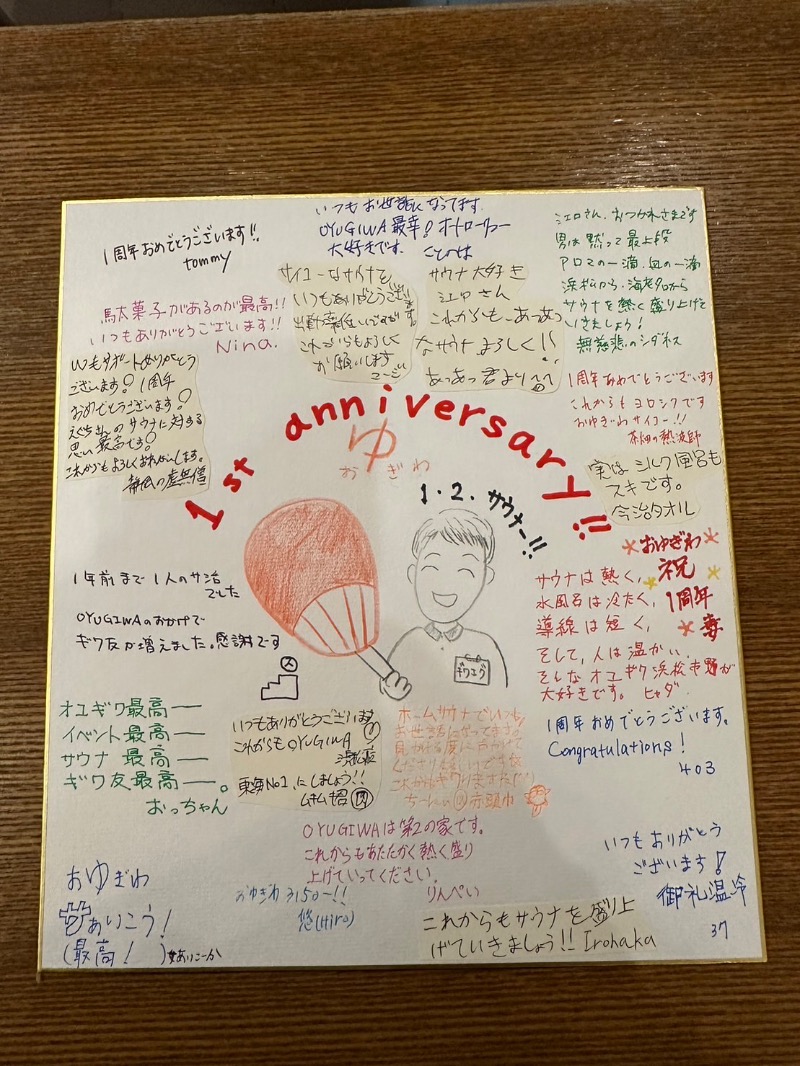 いつもお世話になってます。
OYUGIWA最幸!オートローリュー
大好きです。ことのは
1周年おめでとうございます!!
tommy
馬太菓子があるのが最高!!
いつもありがとうございます!!
Nina.
サイコーなサイナを
いつもありがとうござい
ます。
これからもよろしく
お願いします
サウナ大好き
ジェロさん
これからも、あーあつ
なサウナよろしく!!
あつあっ君より
ジェロさん、おつかれさまです
男は黙って最上段
アロマの一滴、血の一滴
浜松から、海老名から
サウナを熱く盛り上げて
いきましょう!
無慈悲のシダネス
いつもサポートありがとう
ございます!1周年
おめでとうございます!
えぐちさんのサウナに対する
思い最高です!
これからもよろしくお願いします。
静岡の虚無僧
1周年おめでとうございます
これからもヨロシクです
おゆぎわサイコー!!
茶畑の熱波師
実はシルク風呂も
スキです。
今治タオル
1st anniversary!!
ゆ
おぎわ
1・2、サウナー!!
ギワエグ
おゆぎわ
祝
1周年
サウナは熱く、
水風呂は冷たく、
導線は短く、
そして、人は温かい。
そんなオユギワ浜松市野が
大好きです。ヒャダ
1年前まで1人のサ活
でした
OYUGIWAのおかげで
ギワ友が増えました。感謝です
オユギワ最高ー
イベント最高ー
サウナ 最高ー
ギワ友最高ー。
おっちゃん
いつもありがとうございます
これからもOYUGIWA
浜松を
東海No1、にしましょう!!
ホームサウナでいつも
お世話になってます。
見かける度に声かけて
くださり嬉しいです
ちーにぃ 赤頭巾
1周年おめでとうございます。
Congratulations!
403
OYUGIWAは第2の家です。
これからもあたたかく熱く盛り
上げていってください。
りんぺい
おゆぎわ3150ー!!
悠(Hiro)
いつもありがとう
ございます!
御礼温冷
37
おゆぎわ
ありこう!
(最高!)
これからもサウナを盛り上
げていきましょう!! Irohaka